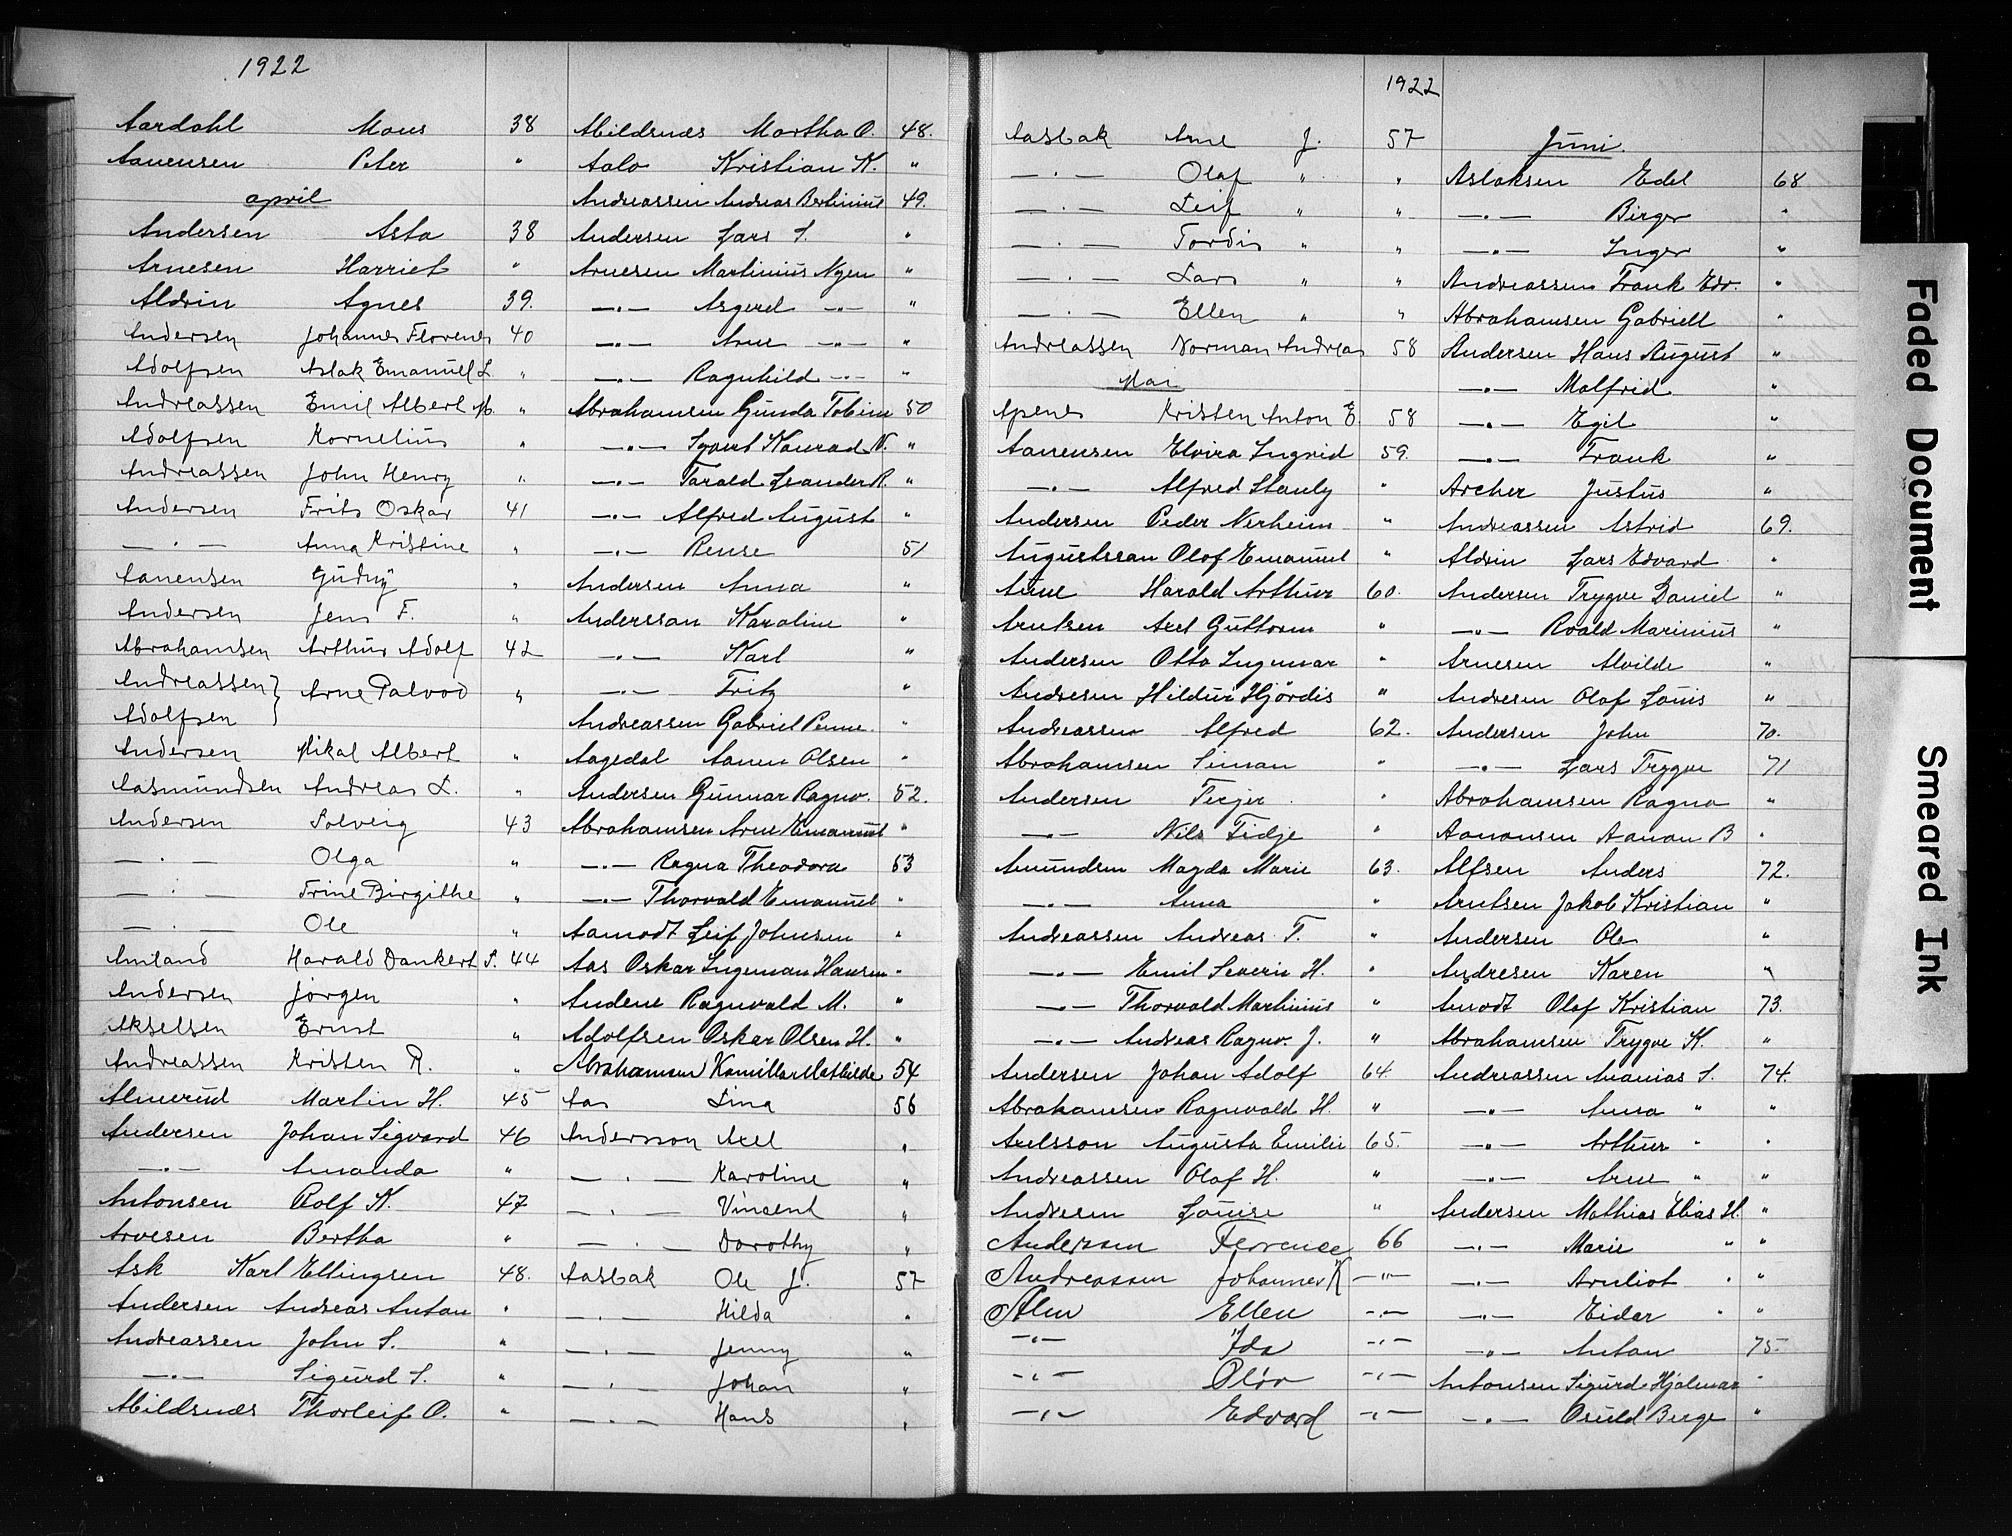 1922
Aardahl Mons 38
Aanensen Peter "
april
Andersen Asta 38
Arnesen Harriet "
Aldrin Agnes 39.
Andersen Johannes Florenes 40
Adolfsen Aslak Emanuel L. "
Andreassen Emil Albert M. "
Adolfsen Kornelius "
Andreassen John Henry "
Andersen Frits Oskar 41
—"— Anna Kristine "
Aanensen Gudny "
Andersen Jens F. "
Abrahamsen Arthur Adolf 42
Andreassen } Arne Palvod "
Adolfsen }
Andersen Mikal Albert "
Aasmundsen Andreas L. "
Andersen Solveig 43
—"— Olga "
—"— Trine Birgithe "
—"— Ole "
Amland Harald Dankert S. 44
Andersen Jørgen "
Akselsen Ernst "
Andreassen Kristen R. "
Almerud Martin H. 45
Andersen Johan Sigvard 46
—"— Amanda "
Antonsen Rolf K. 47
Arvesen Bertha "
Ask Karl Ellingsen 48.
Andersen Andreas Anton "
Andreassen John S. "
—"— Sigurd S. "
Abildsnes Thorleif O. "
Abildsnes Martha O. 48.
Aalo Kristian K. "
Andreassen Andreas Bertinius 49.
Andersen Lars S. "
Arnesen Martinius Nyen "
—"— Asgerd —"— "
—"— Arne —"— "
—"— Ragnhild —"— "
Abrahamsen Gunda Tobine 50
—"— Syvert Konrad N. "
—"— Tarald Leander R. "
—"— Alfred August "
—"— Rense 51
Andersen Anna "
Anderssan Karoline "
—"— Karl "
—"— Fritz "
Andreassen Gabriel Penne "
Aagedal Aanen Olsen "
Andersen Gunnar Ragnv. 52.
Abrahamsen Arne Emanuel "
—"— Ragna Theodora 53
—"— Thorvald Emanuel "
Aamodt Leif Johnsen "
Aas Oskar Ingeman Hansen "
Andene Ragnvald M. "
Adolfsen Oskar Olsen H. "
Abrahamsen Kamilla Mathilde 54
Aas Lina 56
Andersson Axel "
—"— Karoline "
—"— Vincent "
—"— Dorothy "
Aasbak Ole J. 57
—"— Hilda "
—"— Jenny "
—"— Johan "
—"— Hans "
1922
Aasbak Arne J. 57
—"— Olaf " "
—"— Leif " "
—"— Tordis " "
—"— Lars " "
—"— Ellen " "
Andreassen Norman Andreas 58
Mai
Apenes Kristen Anton E. 58
Aanensen Elvira Ingrid 59.
—"— Alfred Stanly "
Andersen Peder Nerheim "
Augustssan Olof Emanuel "
Aune Harald Arthur 60.
Arntsen Axel Guttorm "
Andersen Otto Ingemar "
Andresen Hildur Hjördis "
Andreassen Alfred 62.
Abrahamsen Simon "
Andersen Terjer "
—"— Nils Tidje "
Amundsen Magda Marie 63.
—"— Anna "
Andreassen Andreas T. "
—"— Emil Severin H. "
—"— Thorvald Martinius "
—"— Andreas Ragnv. J. "
Andersen Johan Adolf 64.
Abrahamsen Ragnvald H. "
Axelsson Augusta Emilie 65.
Andreassen Olaf H. "
Andresen Louise "
Anderson Terrence 66
Andreassen Johannes K —"—
Alm Ellen —"—
—"— Ida —"—
—"— Oløv —"—
—"— Edvard —"—
Juni.
Aslaksen Edel 68
—"— Birger "
—"— Inger "
Andreassen Frank Edv. "
Abrahamsen Gabriell "
Andersen Hans August "
—"— Malfrid "
—"— Egil "
—"— Frank "
Archer Justus "
Andreassen Astrid 69.
Aldrin Lars Edvard "
Andersen Trygve Daniel "
—"— Roald Marinius "
Arnesen Alvilde "
Andresen Olaf Louis "
Andersen John 70.
—"— Lars Trygve 71
Abrahamsen Ragna "
Aanonsen Aanon B "
Alfsen Anders 72.
Arntsen Jakob Kristian "
Andersen Ole "
Andresen Karen "
Amodt Olaf Kristian 73.
Abrahamsen Trygve K. "
Andreassen Ananias S. 74.
—"— Anna " "
—"— Arthur " "
—"— Arne " "
Andersen Mathias Elias H. "
—"— Marie " "
—"— Arnliot " "
—"— Eidar " "
—"— Anton 75.
Antonsen Sigurd Hjalmar "
—"— Osuld Berge "
Faded Document
Smeared Ink